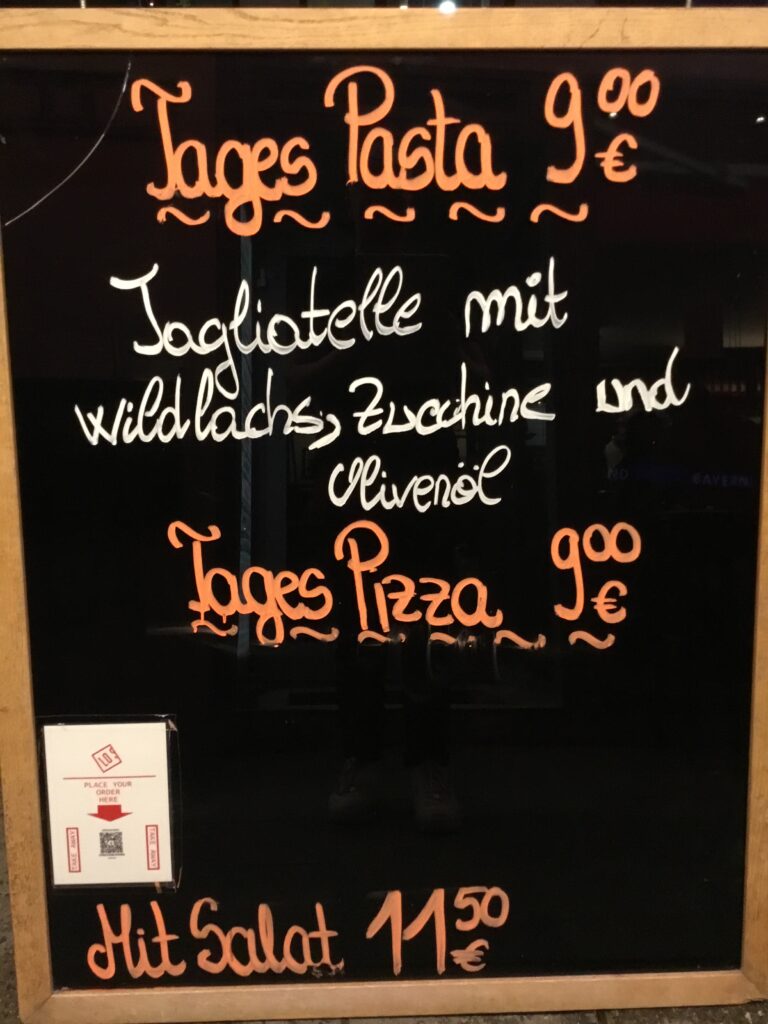 Tages Pasta 9,00 €
Tagliatelle mit
Wildlachs, Zucchine und
Olivenöl
Tages Pizza 9,00 €
PLACE YOUR
ORDER
HERE
TAKE AWAY
TAKE AWAY
Mit Salat 11,50 €